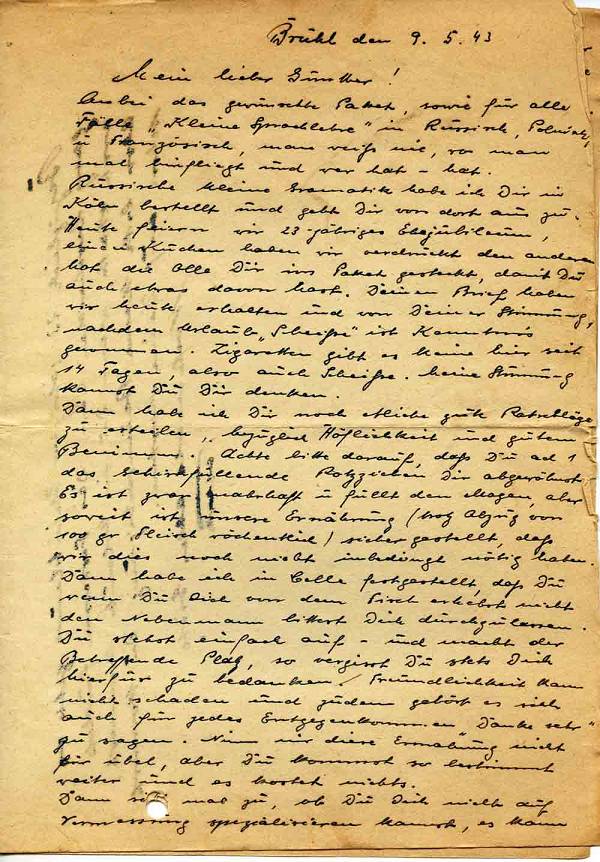 Brühl den 9. 5. 43
Mein lieber Günther!
Anbei das gewünschte Paket, sowie für alle
Fälle „Kleine Sprachlehre" in Russisch, Polnisch,
u Französisch, man weiß nie, wo man
mal hinfliegt und wer hat – hat.
Russische kleine Gramatik habe ich Dir in
Köln bestellt und geht Dir von dort aus zu.
Heute feiern wir 23-jähriges Ehejubiläum,
einen Kuchen haben wir verdrückt den anderen
hat die Olle Dir ins Paket gesteckt, damit Du
auch etwas davon hast. Deinen Brief haben
wir heute erhalten und von Deiner Stimmung,
nachdem Urlaub „Scheiße" ist Kenntnis
genommen. Zigaretten gibt es keine hier seit
14 Tagen, also auch Scheiße. Meine Stimmung
kannst Du Dir denken.
Dann habe ich Dir noch etliche gute Ratschläge
zu erteilen, bezüglich Höflichkeit und gutem
Benimm. Achte bitte darauf, daß Du ad 1
das Rotzziehen Dir abgewöhnst
Es ist zwar nahrhaft u füllt den Magen, aber
soweit ist unsere Ernährung (trotz Abzug von
100 gr Fleisch wöchentlich) sichergestellt, daß
wir dies noch nicht unbedingt nötig haben.
Dann habe ich in Celle festgestellt, daß Du
wenn Du Dich von dem Tisch erhebst nicht
den Nebenmann bittest Dich durchzulassen.
Du stehst einfach auf – und macht der
Betreffende Platz, so vergisst Du stets Dich
hierfür zu bedanken. Freundlichkeit kann
nicht schaden und zudem gehört es sich
auch für jedes Entgegenkommen „Danke sehr"
zu sagen. Nimm mir diese Ermahnung nicht
für übel, aber Du kommst so bestimmt
weiter und es kostet nichts.
Dann mal zu, ob Du Dich nicht auf
Vermessung spezialisieren kannst, es kann